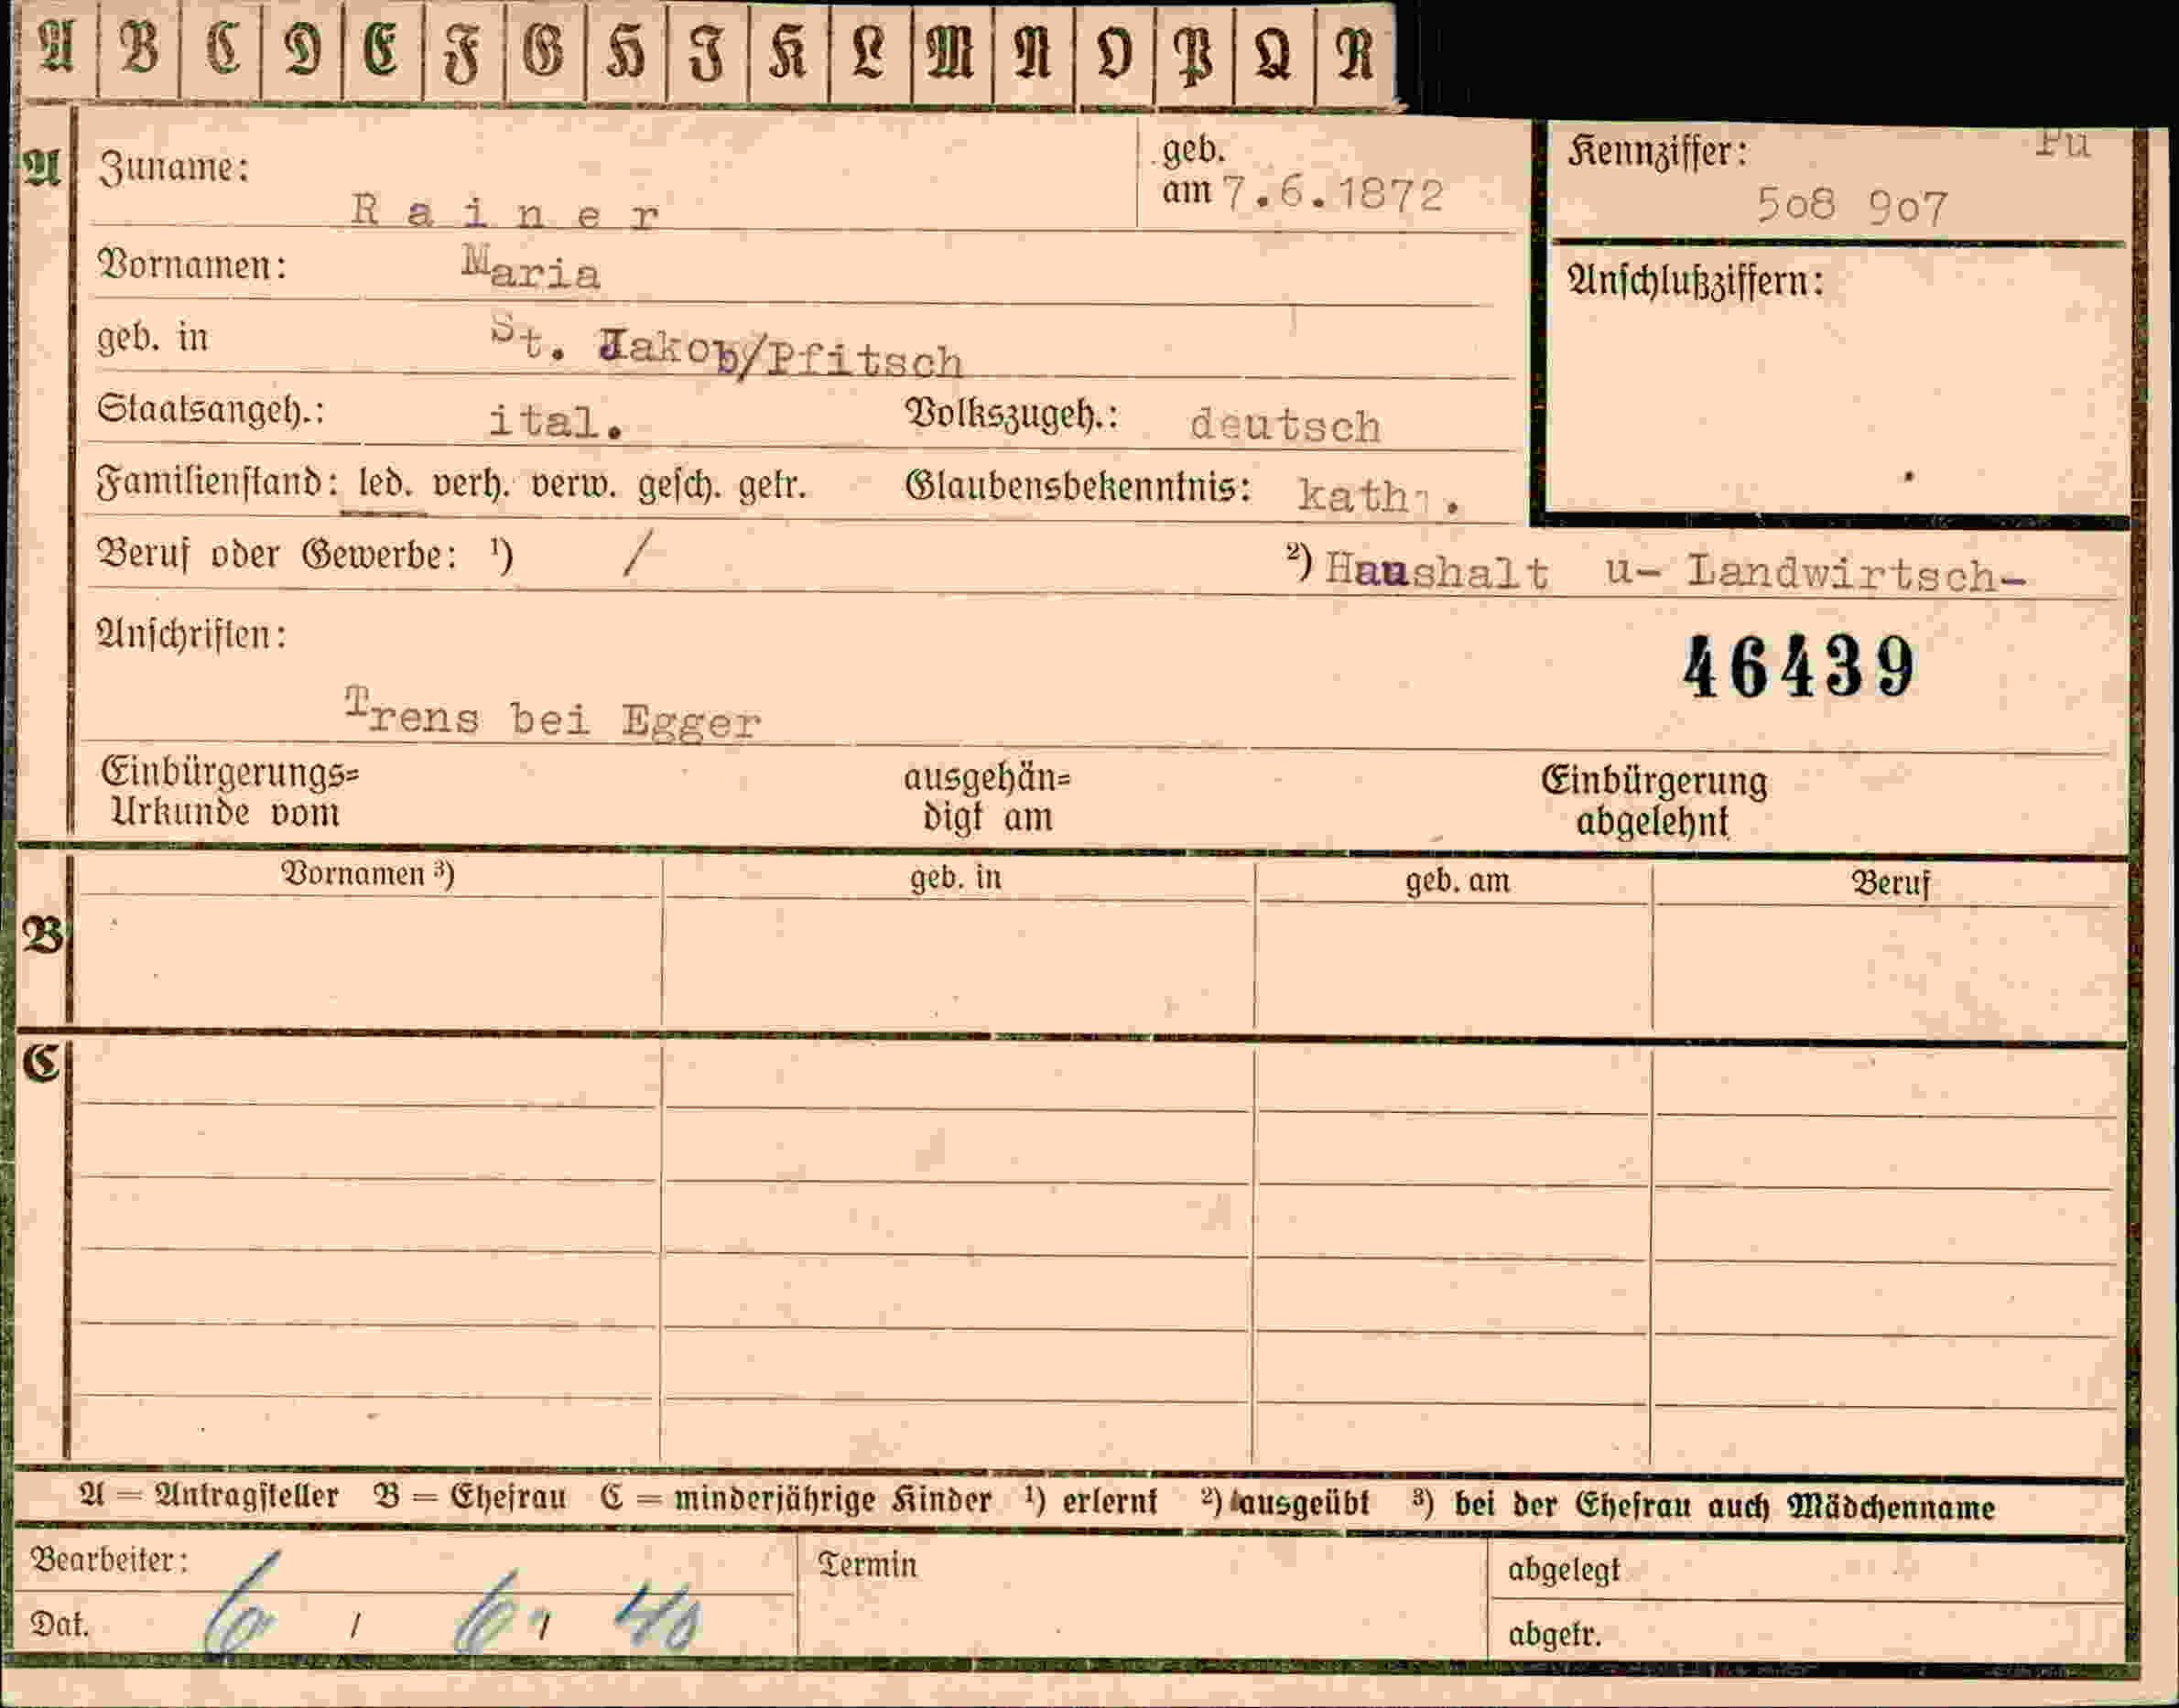 A B C D E F G H J K L M N O P Q R
A Zuname: R a i n e r geb. am 7.6.1872
Kennziffer: Fu
508 907
Vornamen: Maria
Anschlußziffern:
geb. in St. Jakob/Pfitsch
Staatsangeh.: ital. Volkszugeh.: deutsch
Familienstand: led. verh. verw. gesch. getr. Glaubensbekenntnis: kath.
Beruf oder Gewerbe: ¹) / ²) Haushalt u- Landwirtsch-
Anschriften:
46439
Trens bei Egger
Einbürgerungs= ausgehän= Einbürgerung
Urkunde vom digt am abgelehnt
Vornamen ³) geb. in geb. am Beruf
B
C
A = Antragsteller B = Ehefrau C = minderjährige Kinder ¹) erlernt ²) ausgeübt ³) bei der Ehefrau auch Mädchenname
Bearbeiter: Termin abgelegt
Dat. 6 / 6 / 40 abgetr.